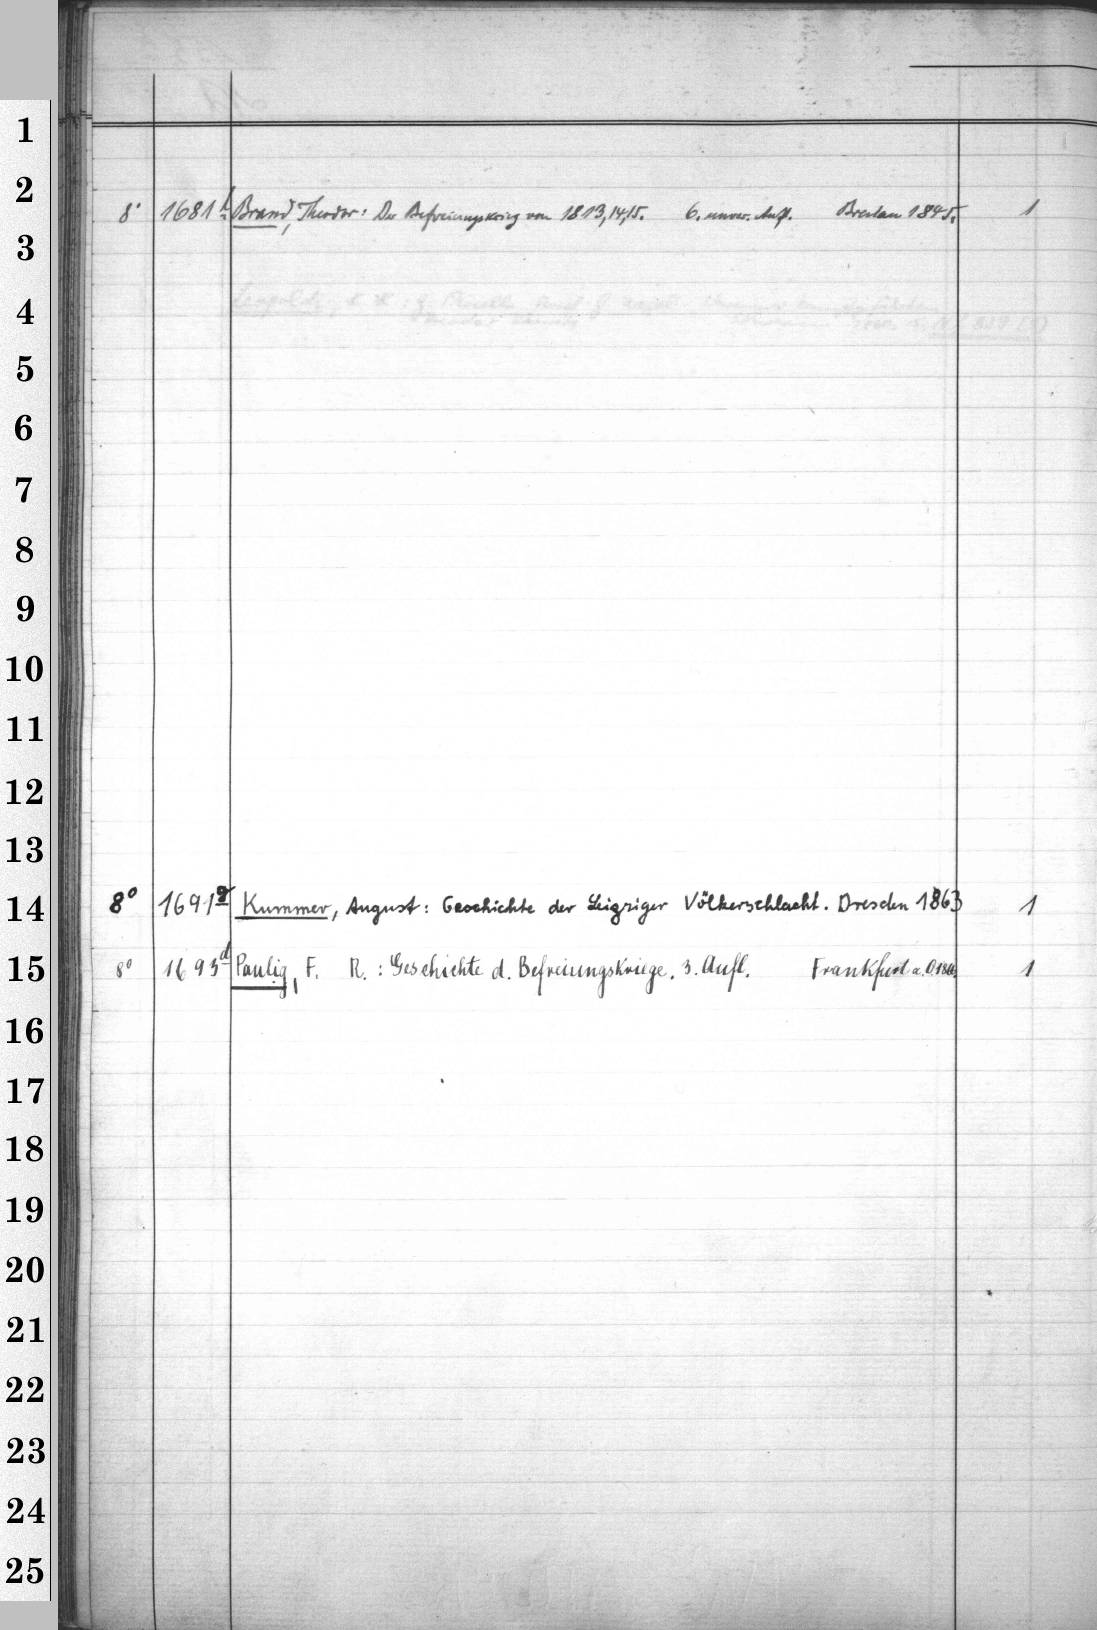 1
2
8° 1681 h Brand, Theodor: Der Befreiungskrieg von 1813,14,15. 6. unver. Aufl. Breslau 1845. 1
3
4
5
6
7
8
9
10
11
12
13
14 8° 1691 g Kummer, August: Geschichte der Leipziger Völkerschlacht. Dresden 1863 1
15 8° 1693 d Paulig, F. R.: Geschichte d. Befreiungskriege. 3. Aufl. Frankfurt a. O. 1
16
17
18
19
20
21
22
23
24
25